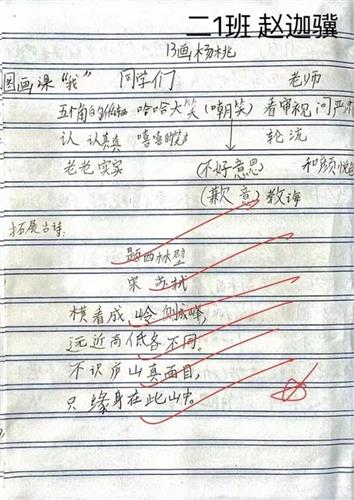 二1班 赵迦骥
13画杨桃
图画课“我” 同学们 老师
五角的 哈哈大笑(嘲笑) 看审视 问严肃
认认真真 嘻嘻的笑 轮流
老老实实 (不好意思) 和颜悦色
(歉意) 教诲
拓展古诗:
题西林壁
宋 苏轼
横看成岭侧成峰,
远近高低各不同。
不识庐山真面目,
只缘身在此山中。